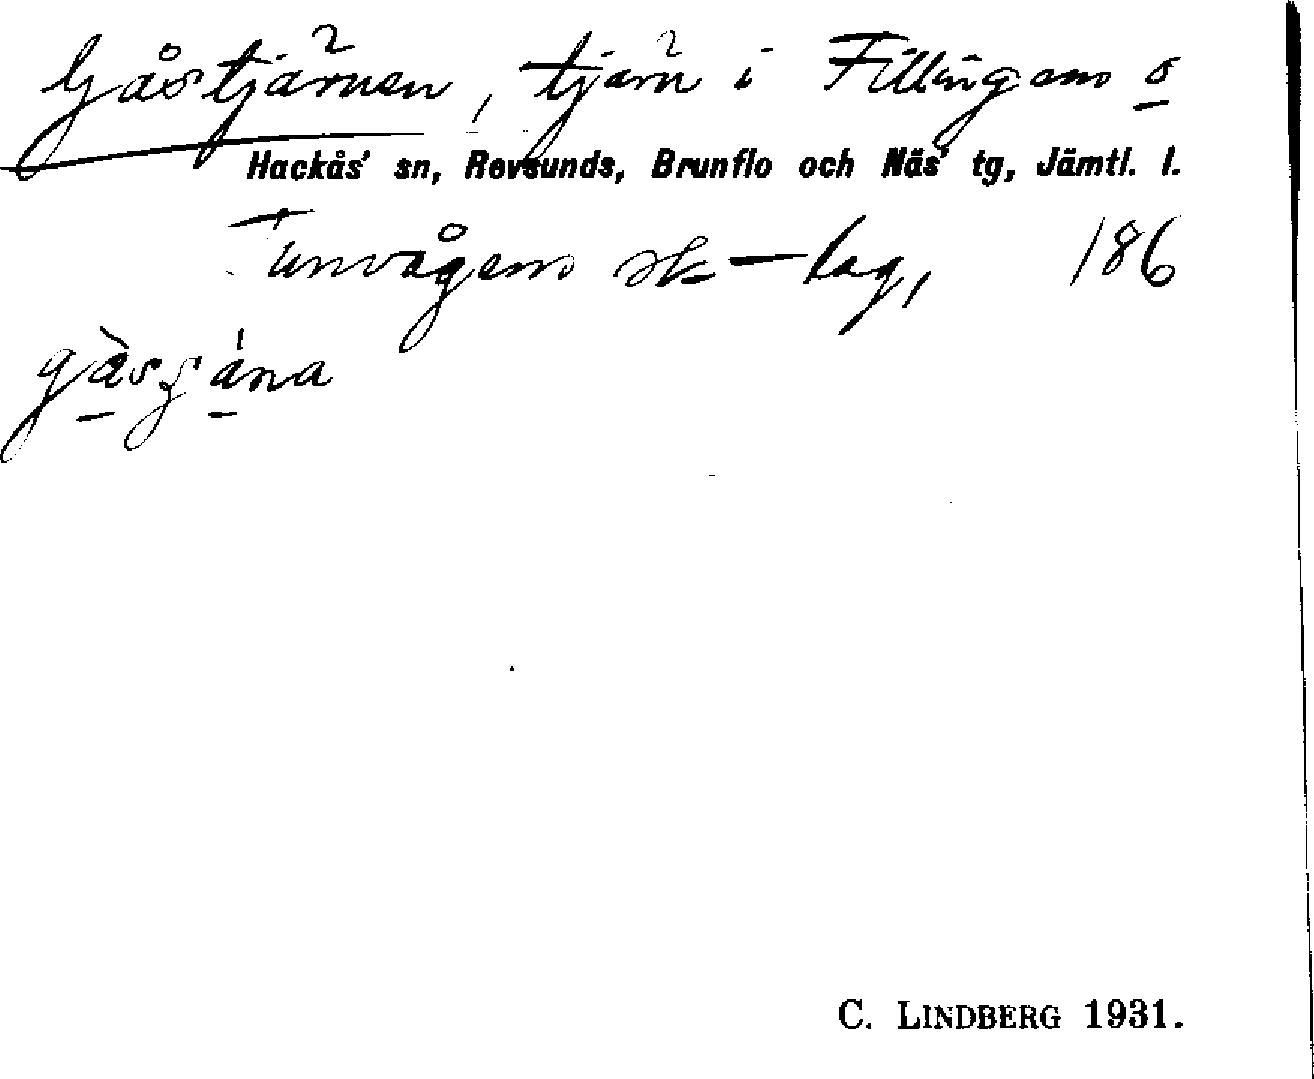 Gåstjärnen, tjärn i Fillingens ö
Hackås' sn, Revsunds, Brunflo och Näs' tg, Jämtl. l.
Tunvågens sk-lag, 186
C. LINDBERG 1931.